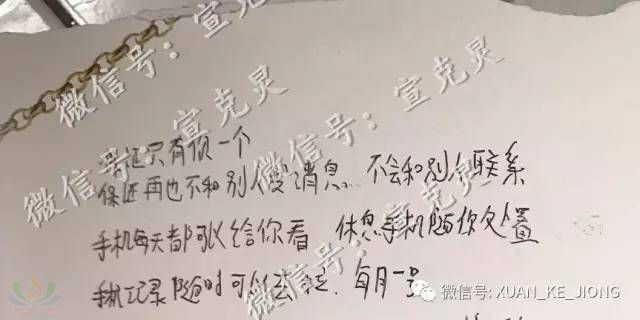 微信号：宣克灵
微信号：宣克灵
微信号：宣克灵
保证只有你一个
保证再也不和别人发消息 不会和别人联系
手机每天都可以给你看 休息手机随你处置
手机记录随时可以去 每月一号
微信号: XUAN_KE_JIONG